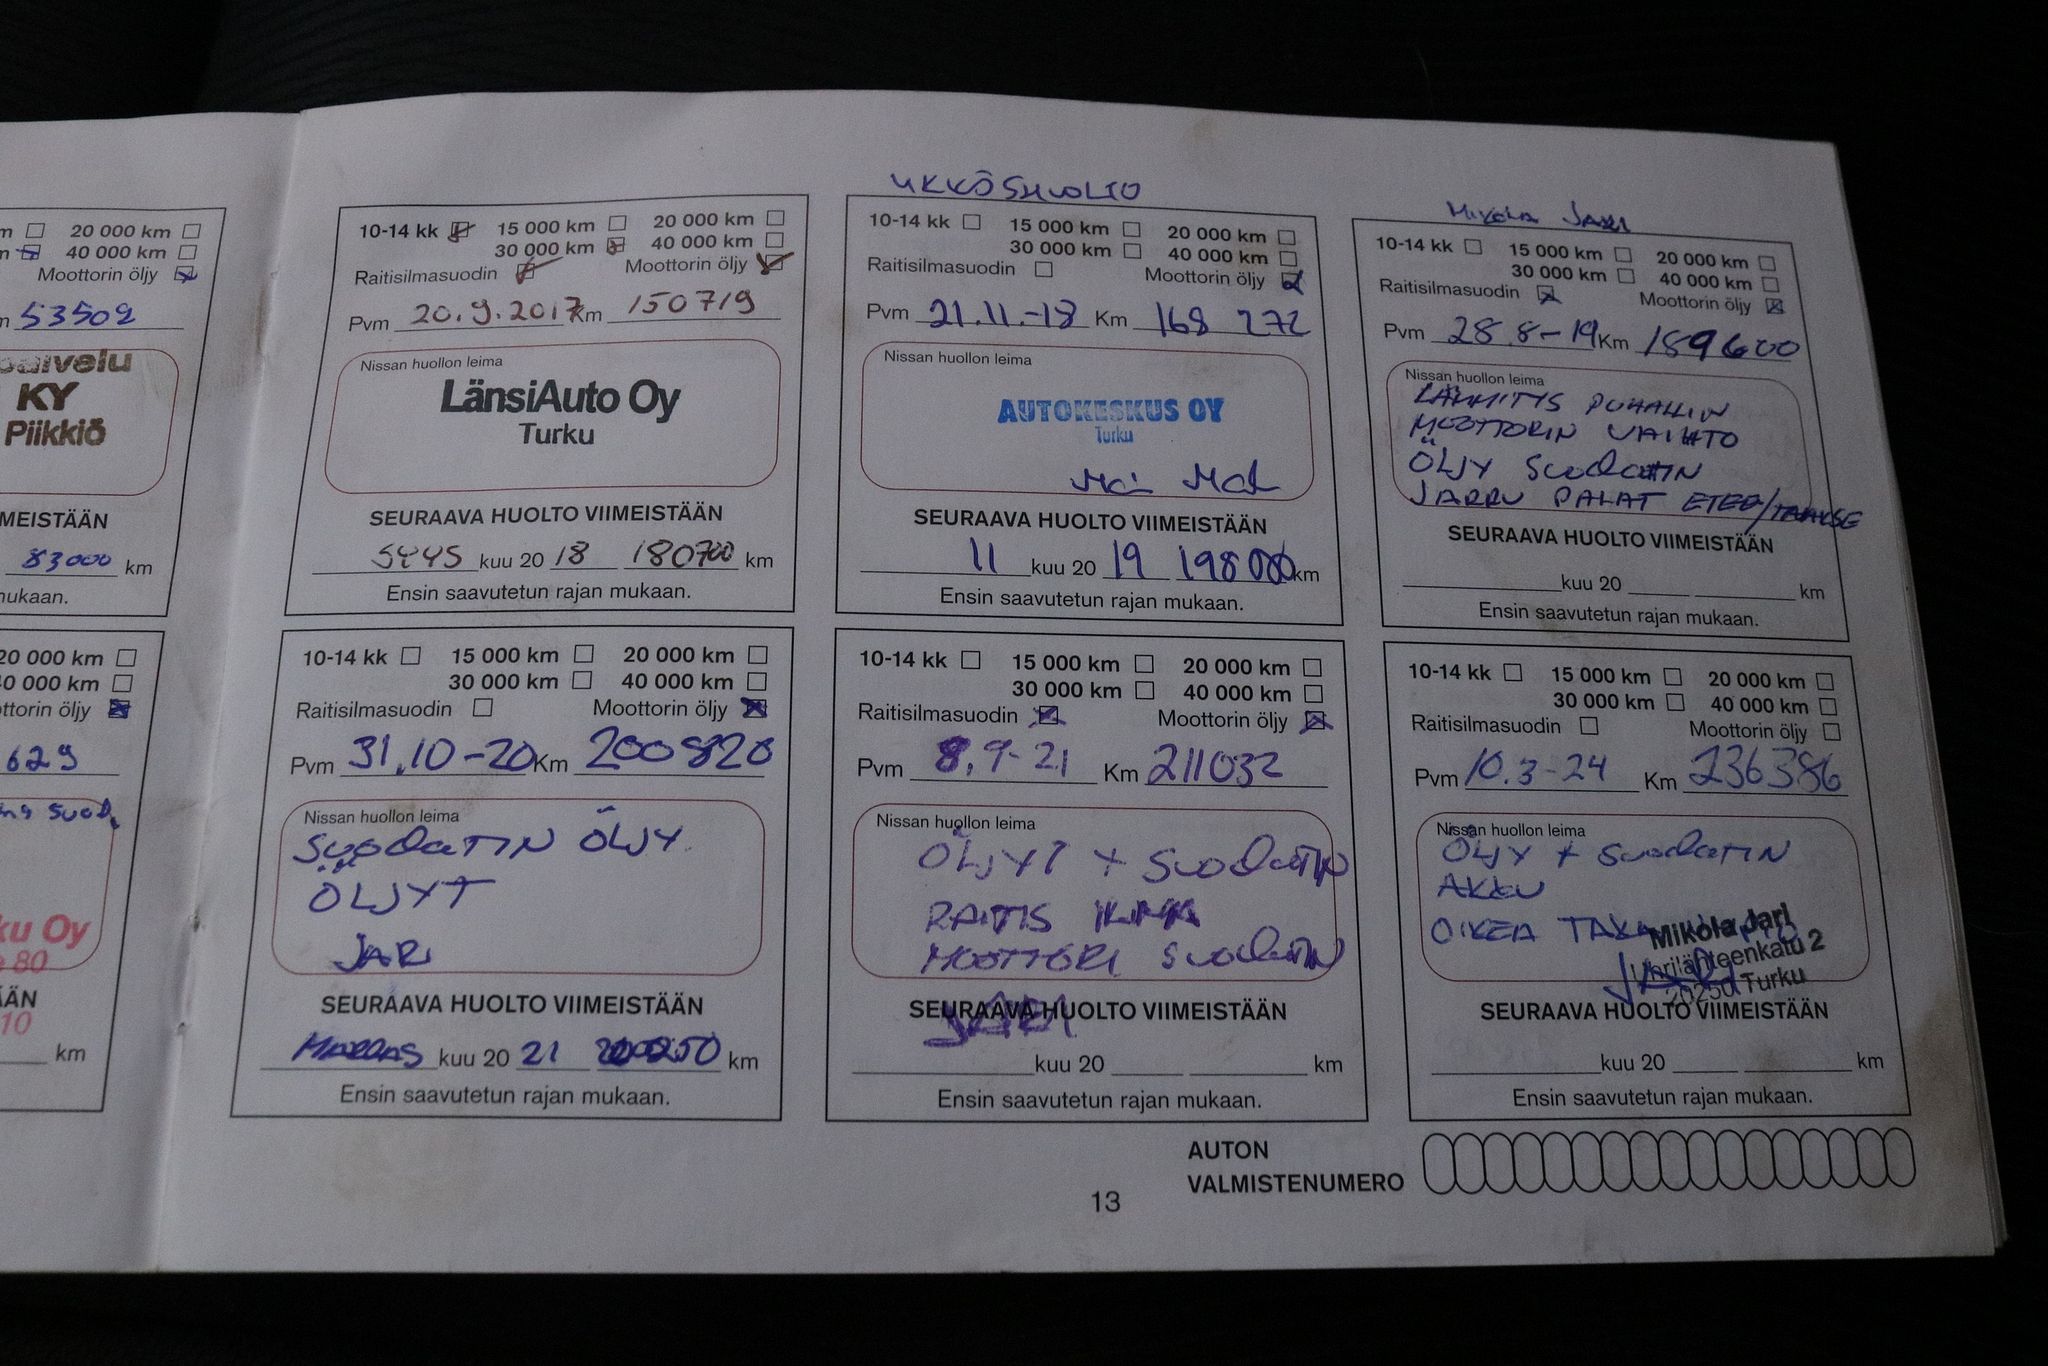 20 000 km
40 000 km
Moottorin öljy
53509
palvelu
KY
Piikkiö
MEISTÄÄN
83000 km
mukaan.
20 000 km
40 000 km
Moottorin öljy
629
ku Oy
80
ÄÄN
10
km
10-14 kk 15 000 km 20 000 km
30 000 km 40 000 km
Raitisilmasuodin Moottorin öljy
Pvm 20.9.2017 Km 150719
Nissan huollon leima
LänsiAuto Oy
Turku
SEURAAVA HUOLTO VIIMEISTÄÄN
SYYS kuu 20 18 180700 km
Ensin saavutetun rajan mukaan.
UKKÖSHUOLTO
10-14 kk 15 000 km 20 000 km
30 000 km 40 000 km
Raitisilmasuodin Moottorin öljy
Pvm 21.11.-18 Km 168 272
Nissan huollon leima
AUTOKESKUS OY
Turku
SEURAAVA HUOLTO VIIMEISTÄÄN
11 kuu 20 19 198000 km
Ensin saavutetun rajan mukaan.
MIKOLA JARI
10-14 kk 15 000 km 20 000 km
30 000 km 40 000 km
Raitisilmasuodin Moottorin öljy
Pvm 28.8-19 Km 189600
Nissan huollon leima
LÄMMITYS PUHALLIN
MOOTTORIN VAIHTO
ÖLJY SUODATIN
JARRU PALAT ETEE/TAAKSE
SEURAAVA HUOLTO VIIMEISTÄÄN
kuu 20 km
Ensin saavutetun rajan mukaan.
10-14 kk 15 000 km 20 000 km
30 000 km 40 000 km
Raitisilmasuodin Moottorin öljy
Pvm 31.10-20 Km 200820
Nissan huollon leima
SUODATIN ÖLJY
ÖLJYT
JARI
SEURAAVA HUOLTO VIIMEISTÄÄN
MARRAS kuu 20 21 km
Ensin saavutetun rajan mukaan.
10-14 kk 15 000 km 20 000 km
30 000 km 40 000 km
Raitisilmasuodin Moottorin öljy
Pvm 8.9-21 Km 211032
Nissan huollon leima
ÖLJYT + SUODATIN
RAITIS ILMA
MOOTTORI SUODATIN
JARI
SEURAAVA HUOLTO VIIMEISTÄÄN
kuu 20 km
Ensin saavutetun rajan mukaan.
10-14 kk 15 000 km 20 000 km
30 000 km 40 000 km
Raitisilmasuodin Moottorin öljy
Pvm 10.3-24 Km 236386
Nissan huollon leima
ÖLJY + SUODATIN
AKKU
OIKEA TAKA
Mikola Jari
2
JARI
20250 Turku
SEURAAVA HUOLTO VIIMEISTÄÄN
kuu 20 km
Ensin saavutetun rajan mukaan.
AUTON
VALMISTENUMERO
13